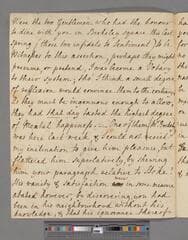 Were the two Gentlemen who had the honour
to dine with you in Berkeley square this last
spring; these two infidels to Sentiment to be
Witnesses to this assertion, perhaps they might
presume or pretend I was become a Victim
to their System; tho' I think a small degree
of reflexion would convince them to the contrary.
They must be ingenuous enough to allow,
they had that day tasted the highest degree
of Mental happiness.
was here last week, & I could not resist
my inclination to give him pleasure, but
flattered him superlatively, by shewing
him your paragraph relative to
His vanity & satisfaction in some measure
abated however, in discovering you had
been in his neighbourhood without his
knowledge, & that his ignorance thereof